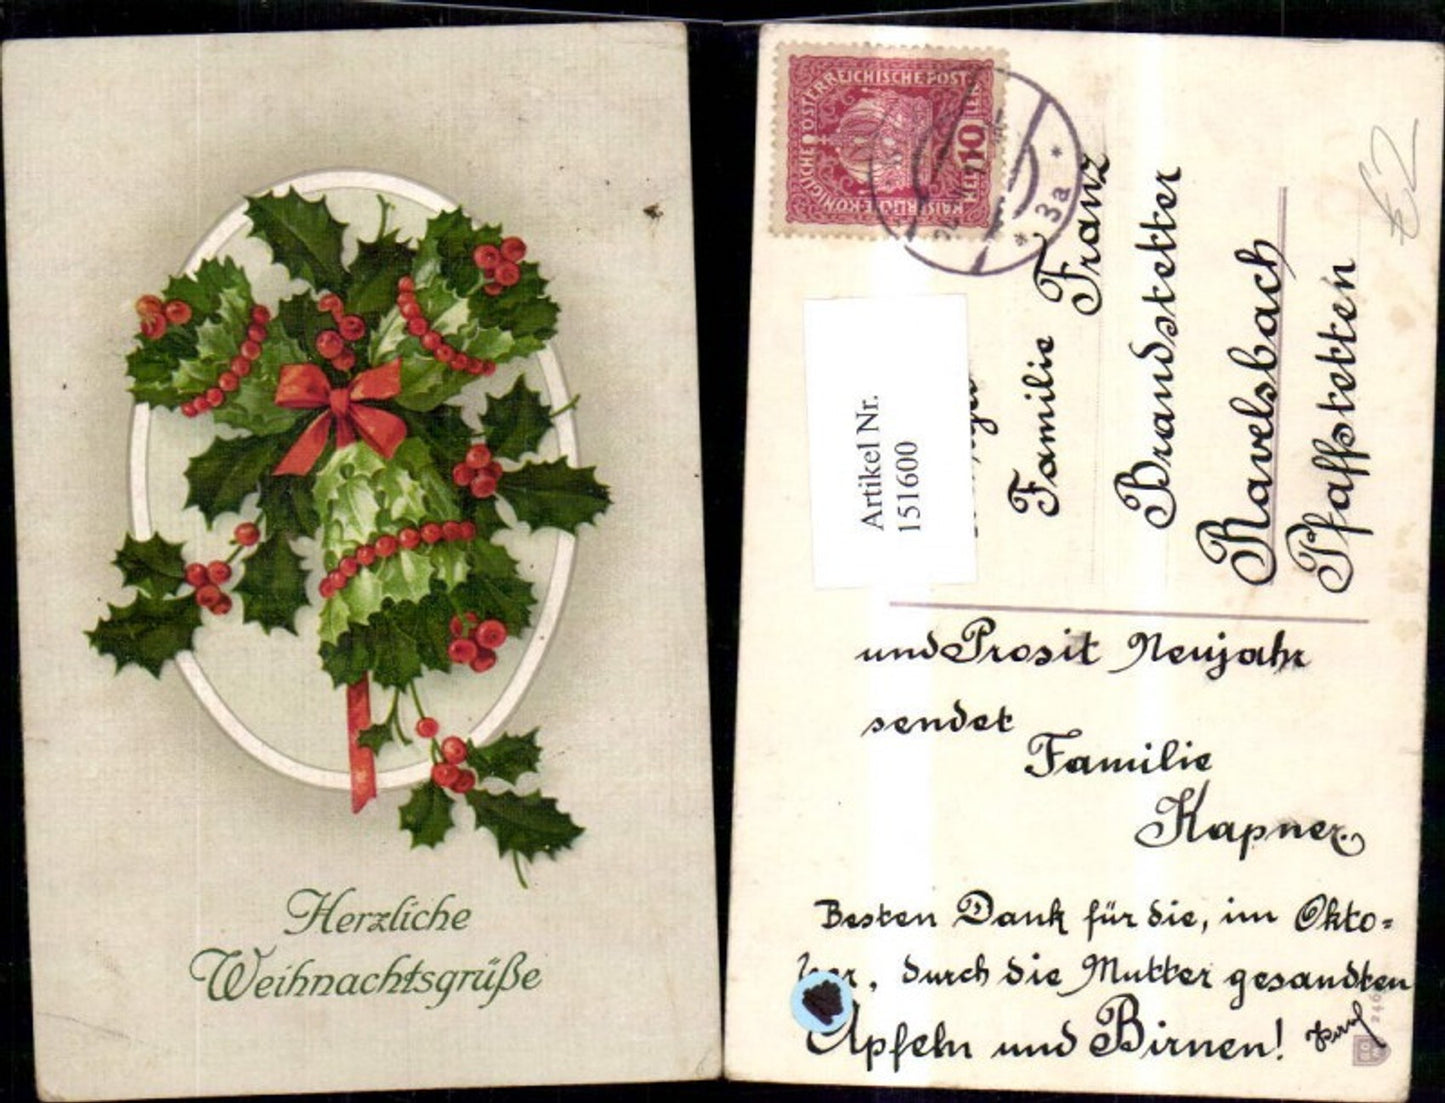 Herzliche
Weihnachtsgrüße
KAISERLICHE KÖNIGLICHE ÖSTERREICHISCHE POST
10
* 3a *
Artikel Nr.
151600
Familie Franz
Brandstetter
Ravelsbach
Pfaffstetten
€2
und Prosit Neujahr
sendet
Familie
Kapner
Besten Dank für die, im Okto=
ber, durch die Mutter gesandten
Äpfeln und Birnen!